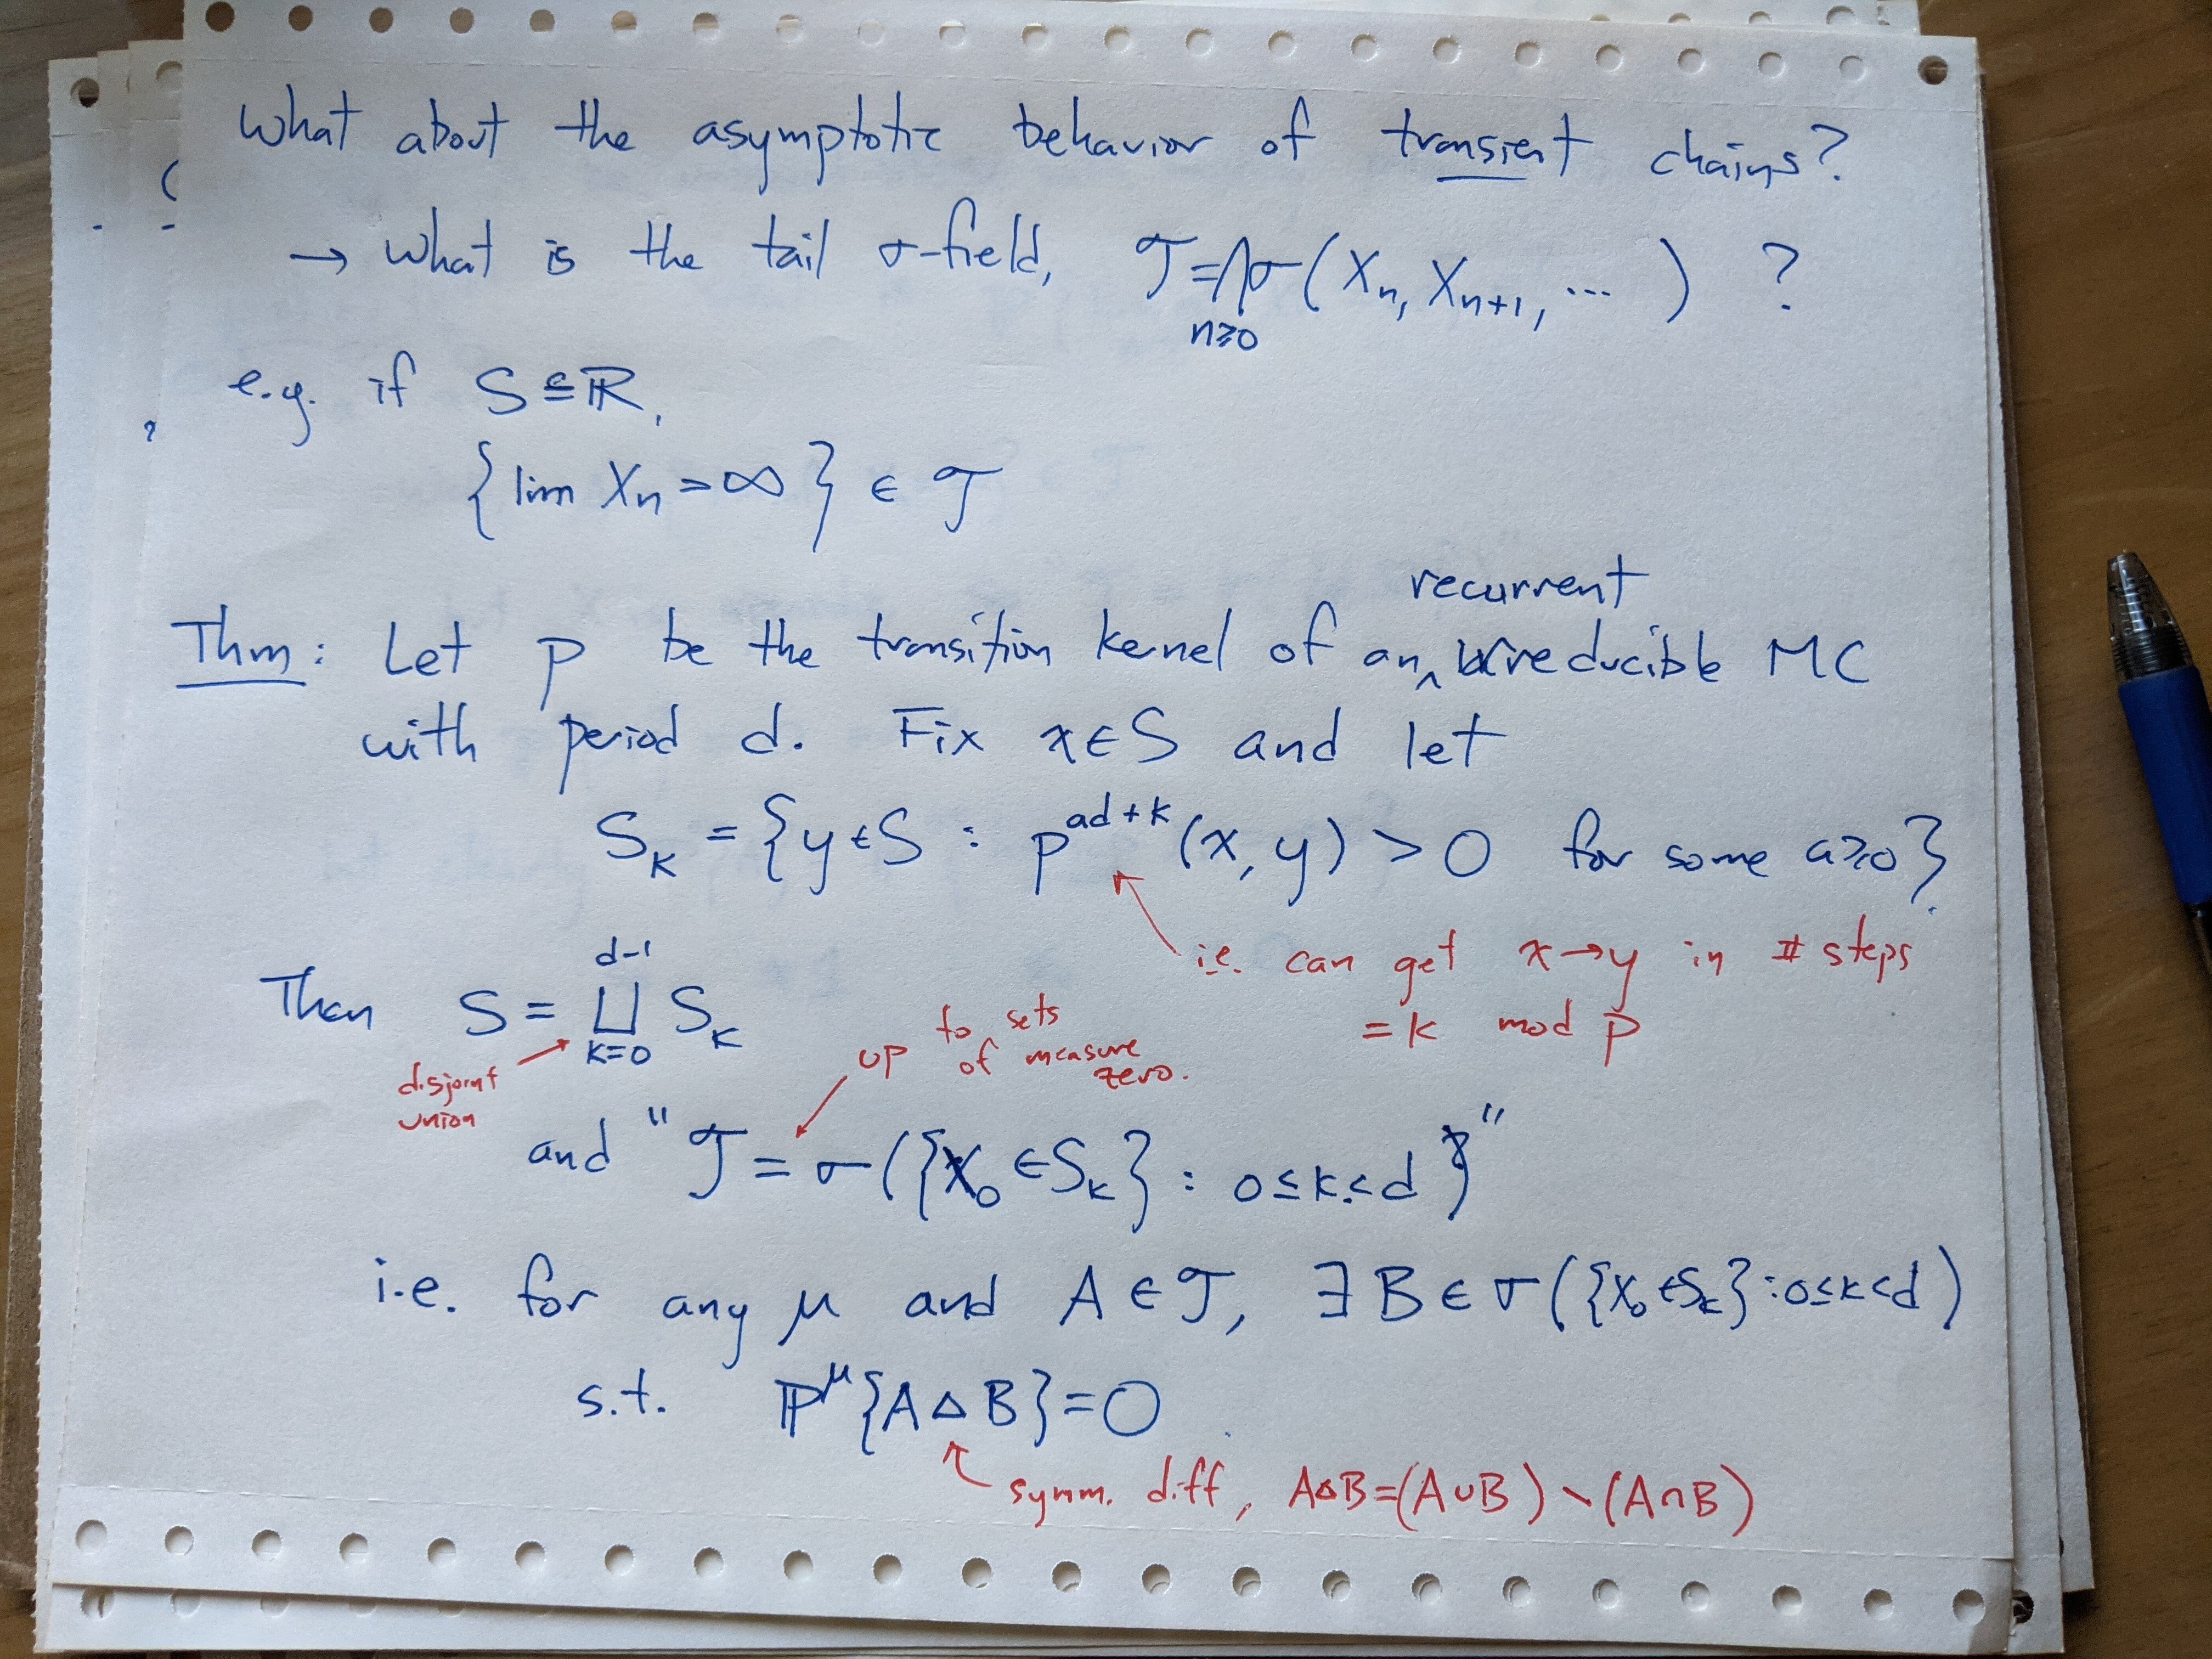 What about the asymptotic behavior of transient chains?
→ What is the tail σ-field, 𝒯 = ⋂_{n≥0} σ(X_n, X_{n+1}, ...) ?
e.g. if S ⊆ ℝ,
{lim X_n = ∞} ∈ 𝒯
Thm: Let p be the transition kernel of an ‸ recurrent irreducible MC
with period d. Fix x∈S and let
S_k = {y∈S : p^{ad+k}(x,y) > 0 for some a≥0}.
i.e. can get x→y in # steps
= k mod p
Then S = ⨆_{k=0}^{d-1} S_k
disjoint
union
up to sets
of measure
zero.
and "𝒯 = σ({X_0 ∈ S_k} : 0≤k<d)"
i.e. for any μ and A ∈ 𝒯, ∃ B ∈ σ({X_0 ∈ S_k} : 0≤k<d)
s.t. ℙ^μ{A △ B} = 0.
symm. diff, A△B = (A∪B) \ (A∩B)